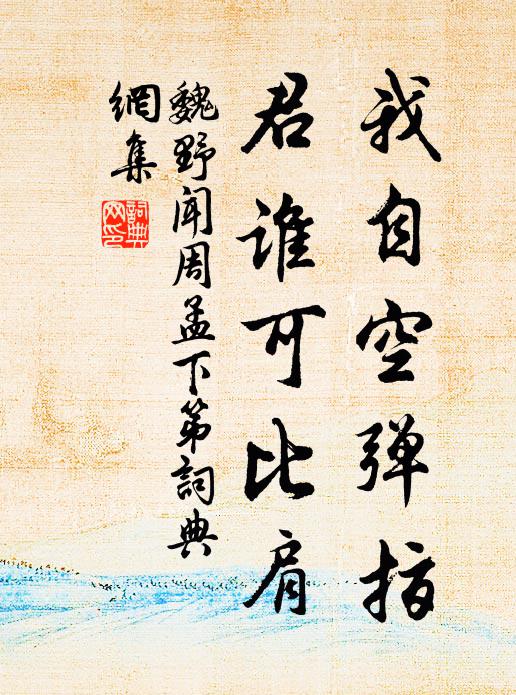 我自空弹指
君谁可比肩
魏野闻周孟下第词典
網集
詞典
网印